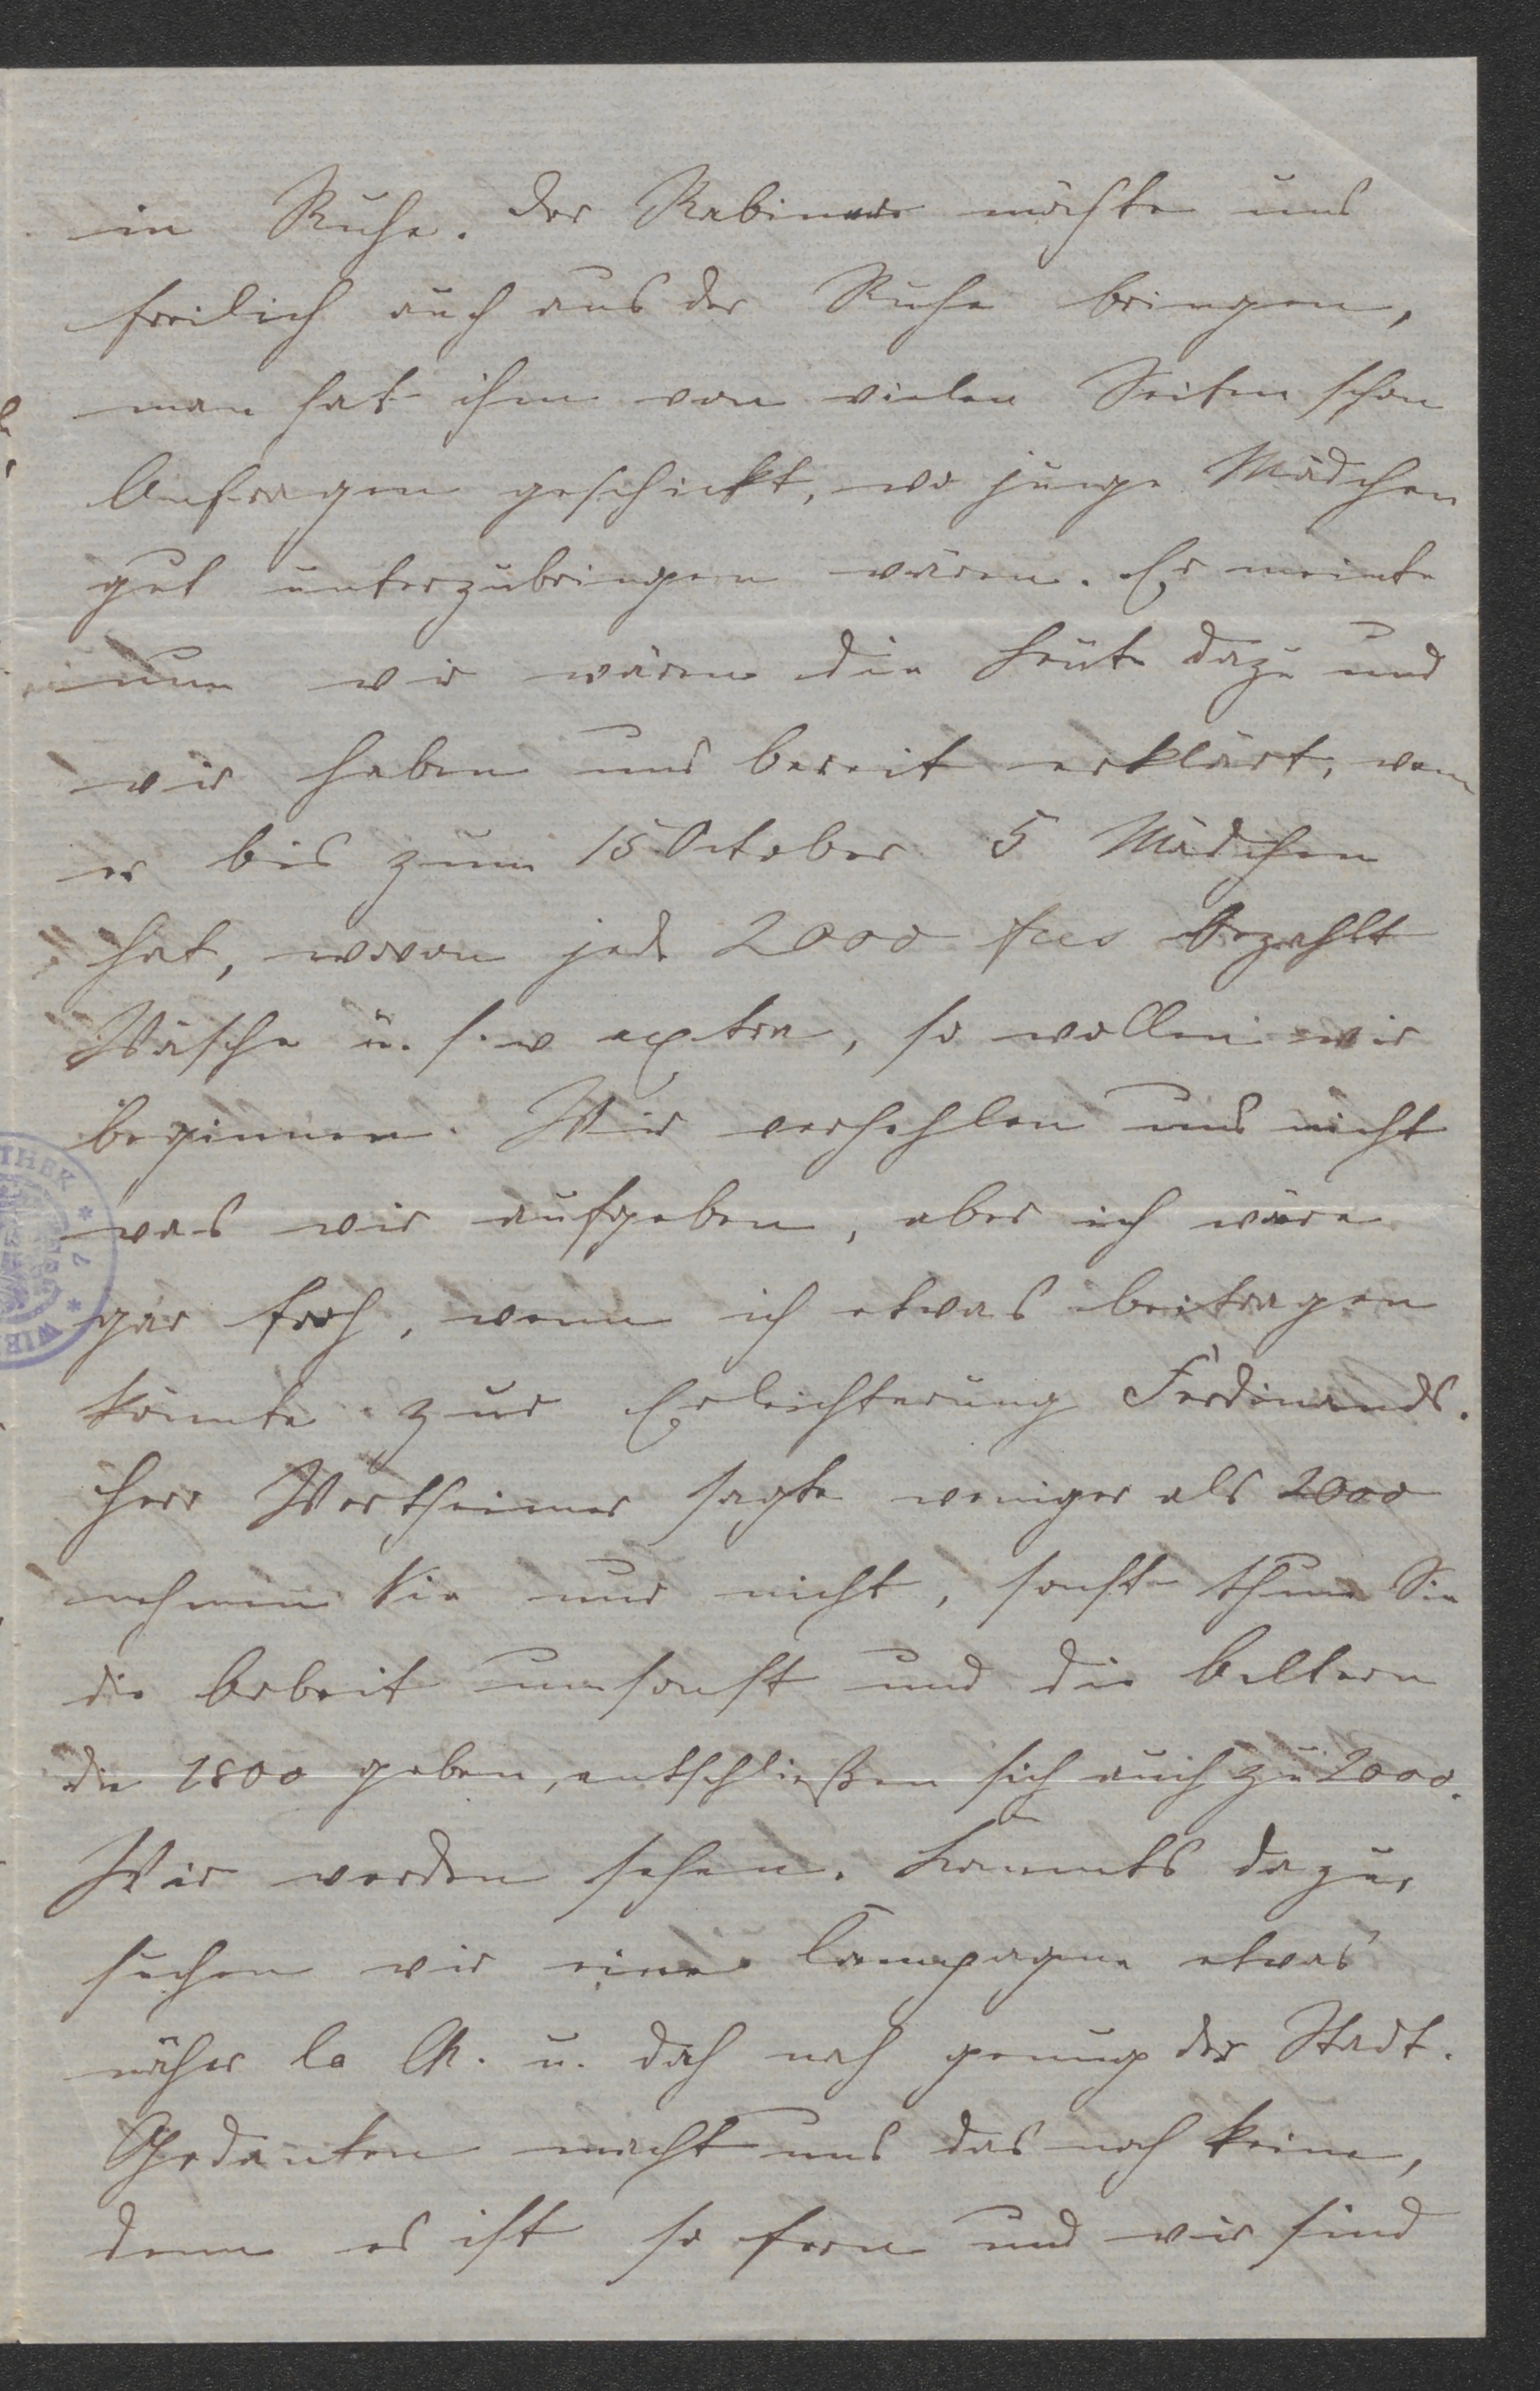 in Ruhe. Der Rabiner möchte uns
freilich auch aus der Ruhe bringen,
man hat ihm von vielen Seiten schon
Anfragen geschickt, wo junge Mädchen
gut unterzubringen wären. Er meinte
nun wir wären die Leute dazu und
wir haben uns bereit erklärt, wenn
er bis zum 15 October 5 Mädchen
hat, wovon jede 2000 frcs bezahlt
Wäsche u. s. w extra, so wollen wir
beginnen. Wir verhehlen uns nicht
was wir aufgeben, aber ich wäre
gar froh, wenn ich etwas beitragen
könnte zur Erleichterung Ferdinands.
Herr Wertheimer sagte weniger als 2000
nehmen Sie nur nicht, sonst thun Sie
die Arbeit umsonst und die Aeltern
die 1800 geben, entschließen sich auch zu 2000.
Wir werden sehen. Kommts dazu,
suchen wir eine Campagne etwas
näher la Ch. u. doch nah genug der Stadt.
Gedanken macht uns das noch keine,
denn es ist so fern und wir sind
THEK * 7 * WIE